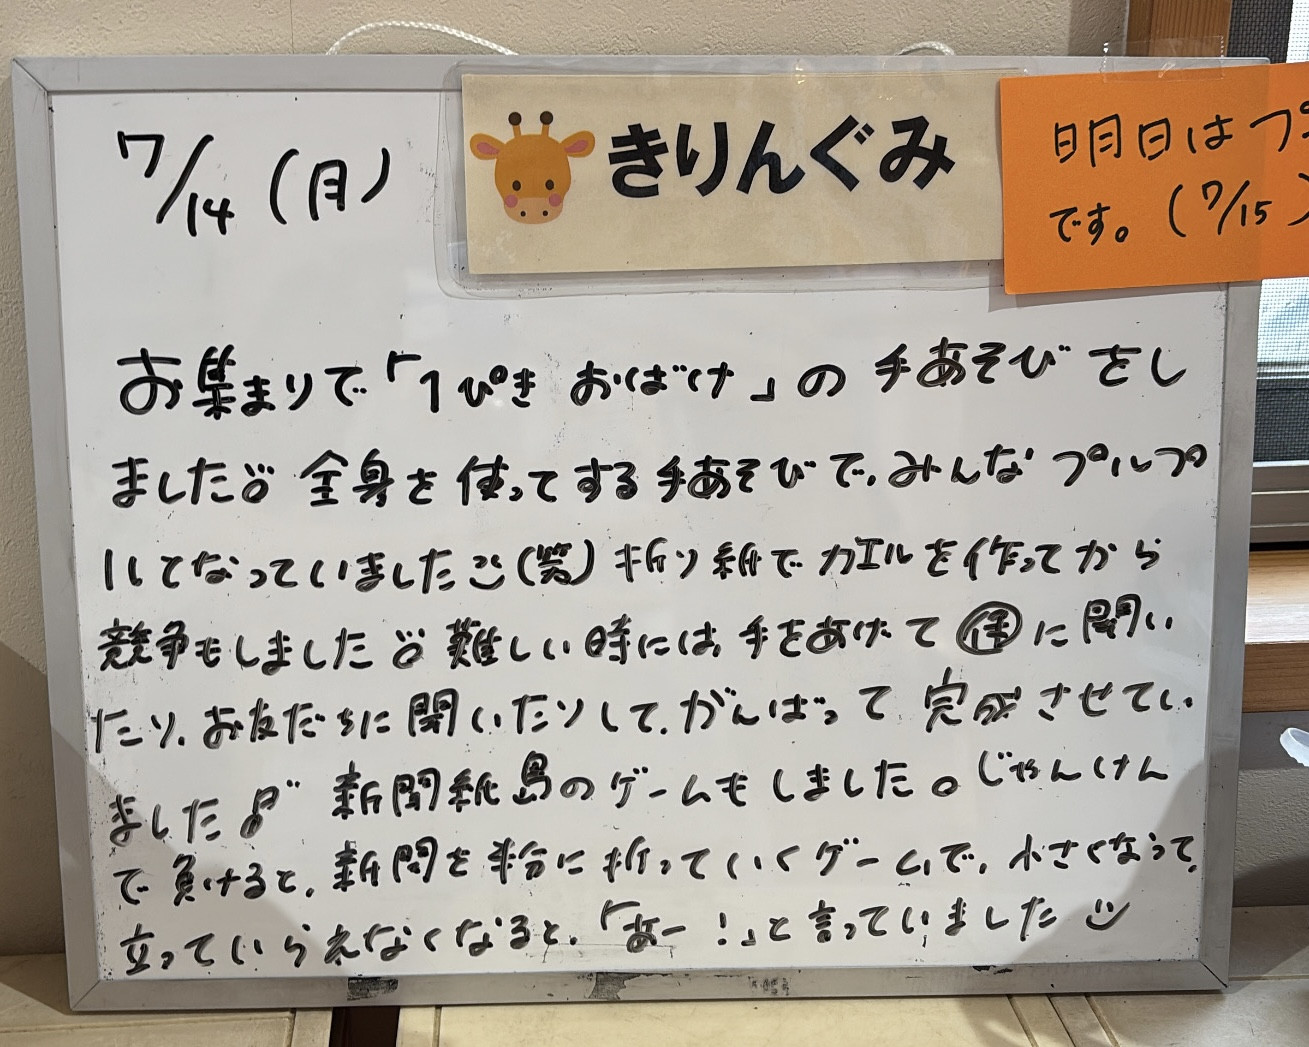 7/14 (月)
きりんぐみ
明日はプ
です。(7/15)
お集まりで「1ぴきおばけ」の手あそびをし
ました 全身を使ってする手あそびで、みんなプルプ
ルしてなっていました(笑) 折り紙でカエルを作ってから
競争もしました 難しい時には、手をあげて㋭に聞い
たり、お友だちに聞いたりして、がんばって完成させてい
ました♪ 新聞紙島のゲームもしました。じゃんけん
で負けると、新聞を半分に折っていくゲームで、小さくなって、
立っていられなくなると、「あー！」と言っていました